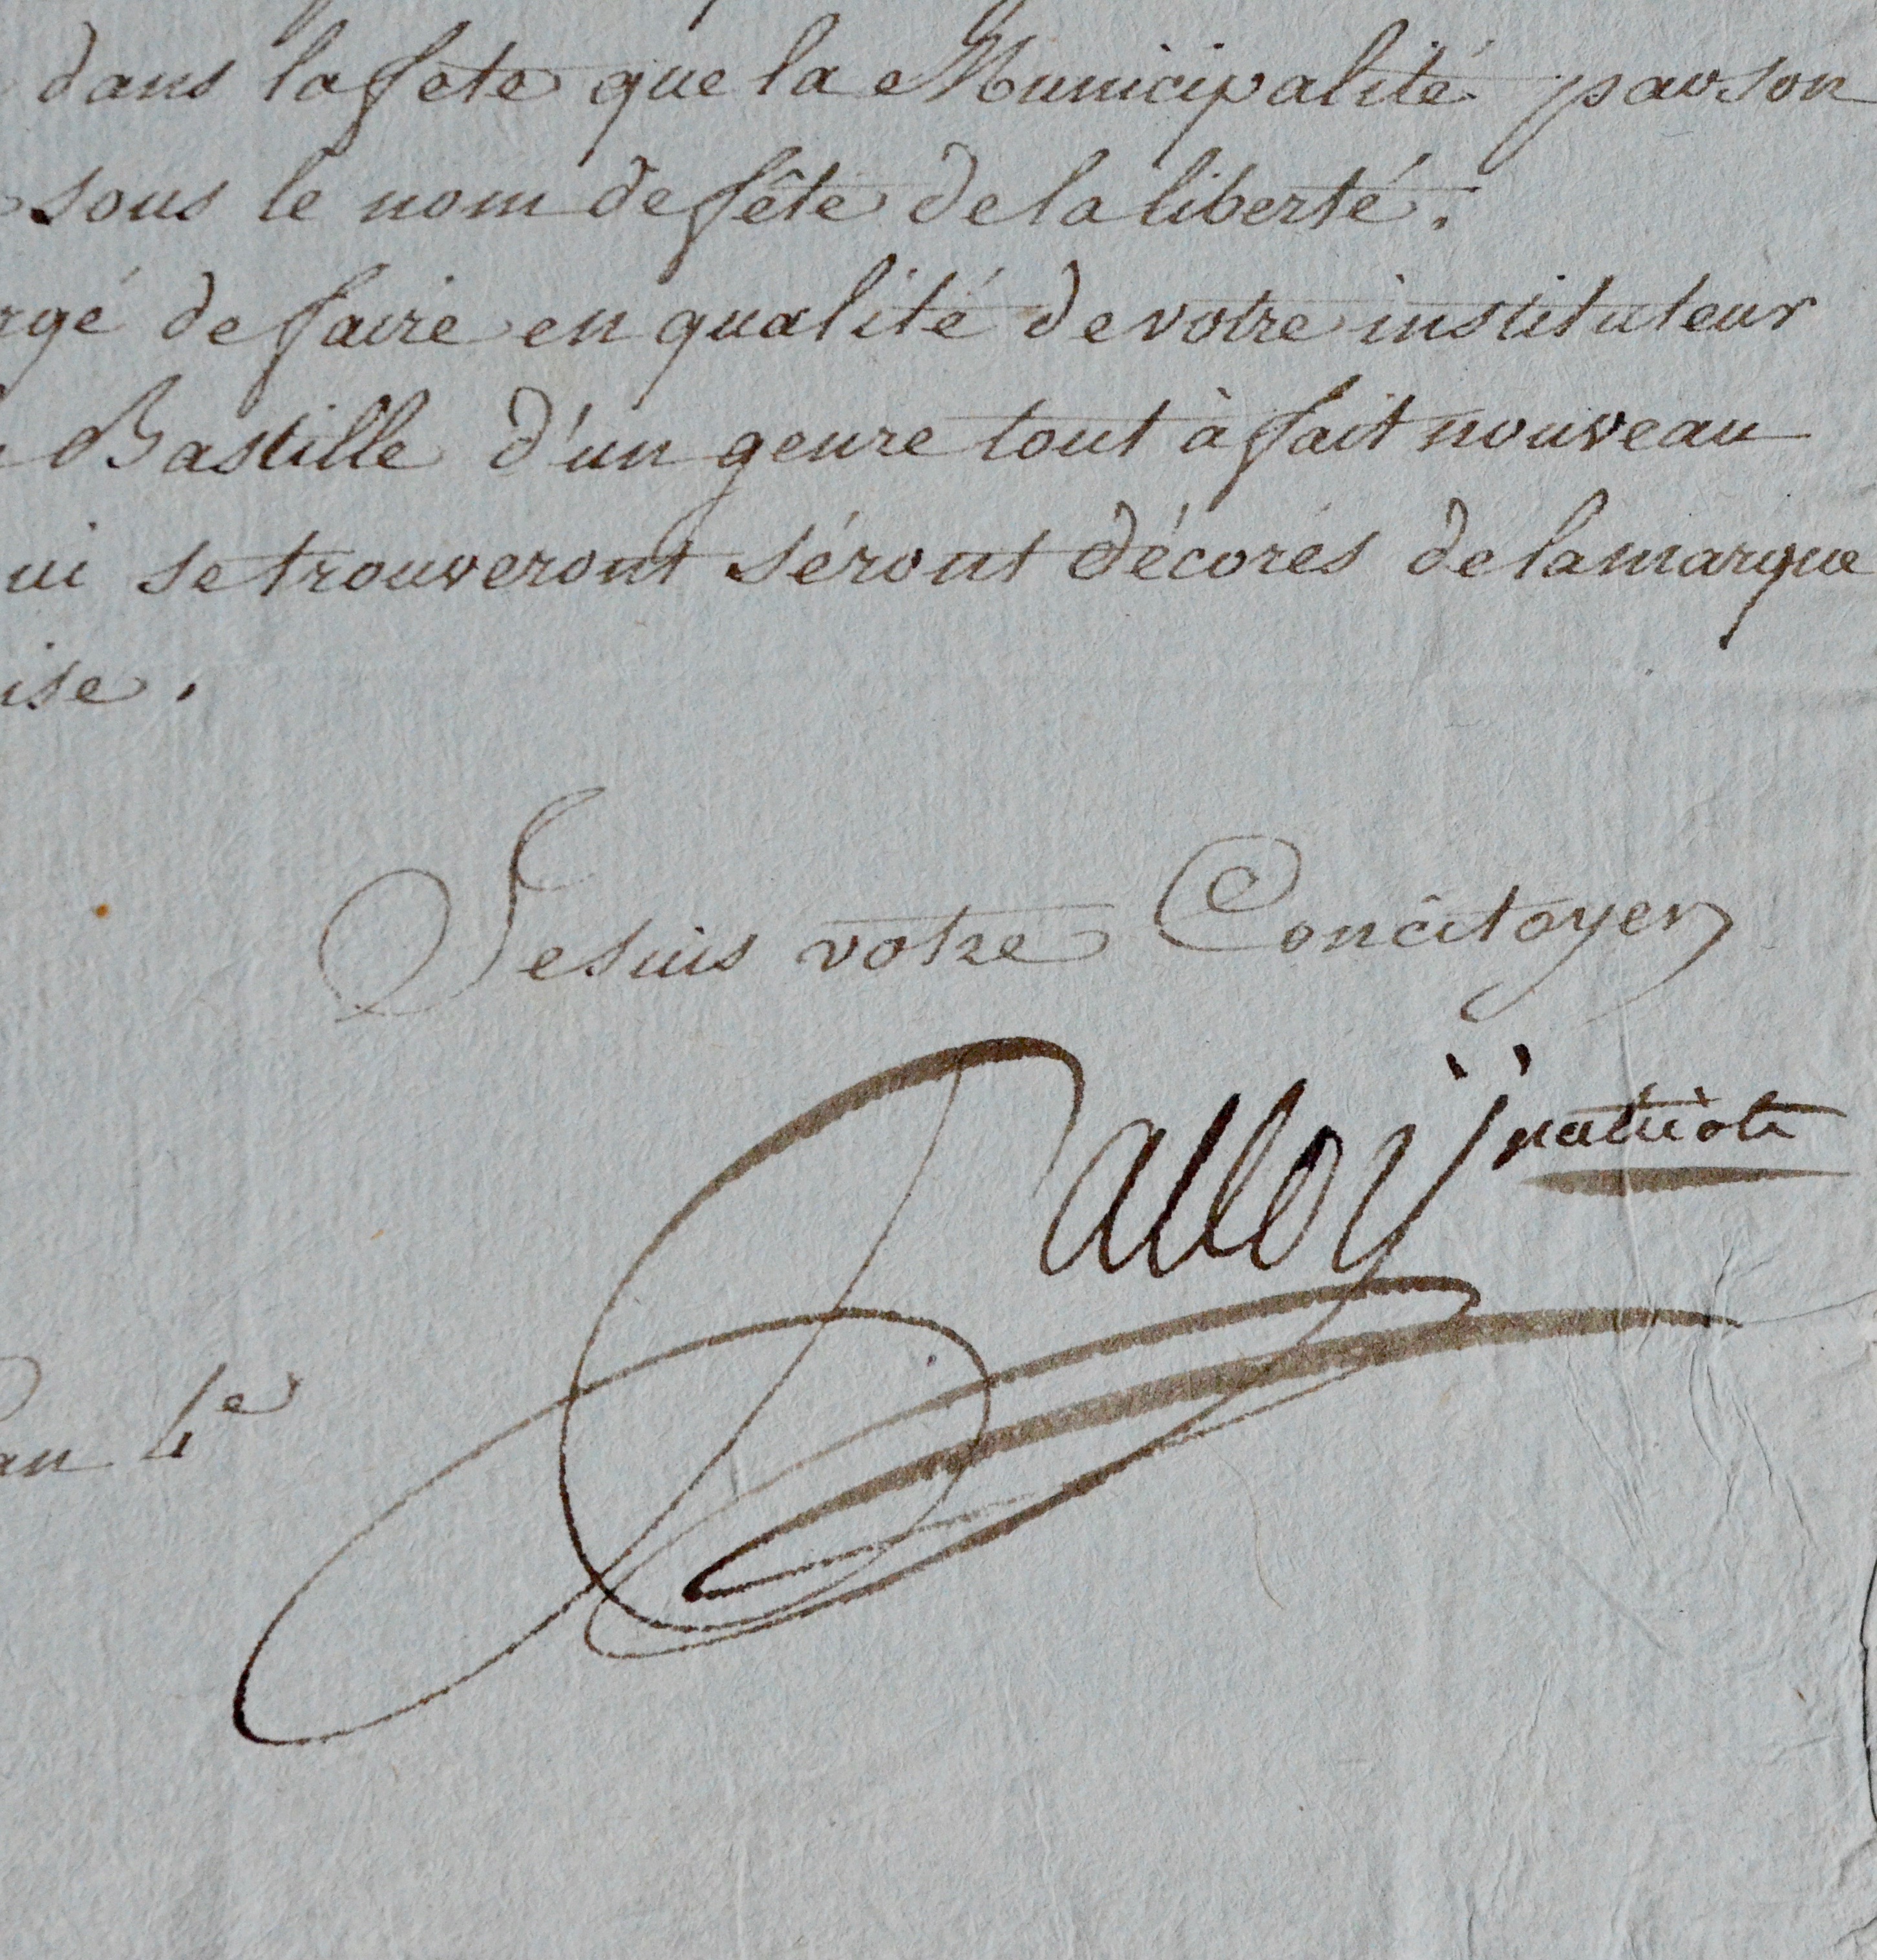 dans la fete que la Municipalité par son
sous le nom de fête de la liberté.
rgé de faire en qualité de votre instituteur
Bastille d'un genre tout à fait nouveau
ui se trouveront séront décorés de la marque
ise.
Je suis votre Concitoyen
Palloÿ patriote
an 4e